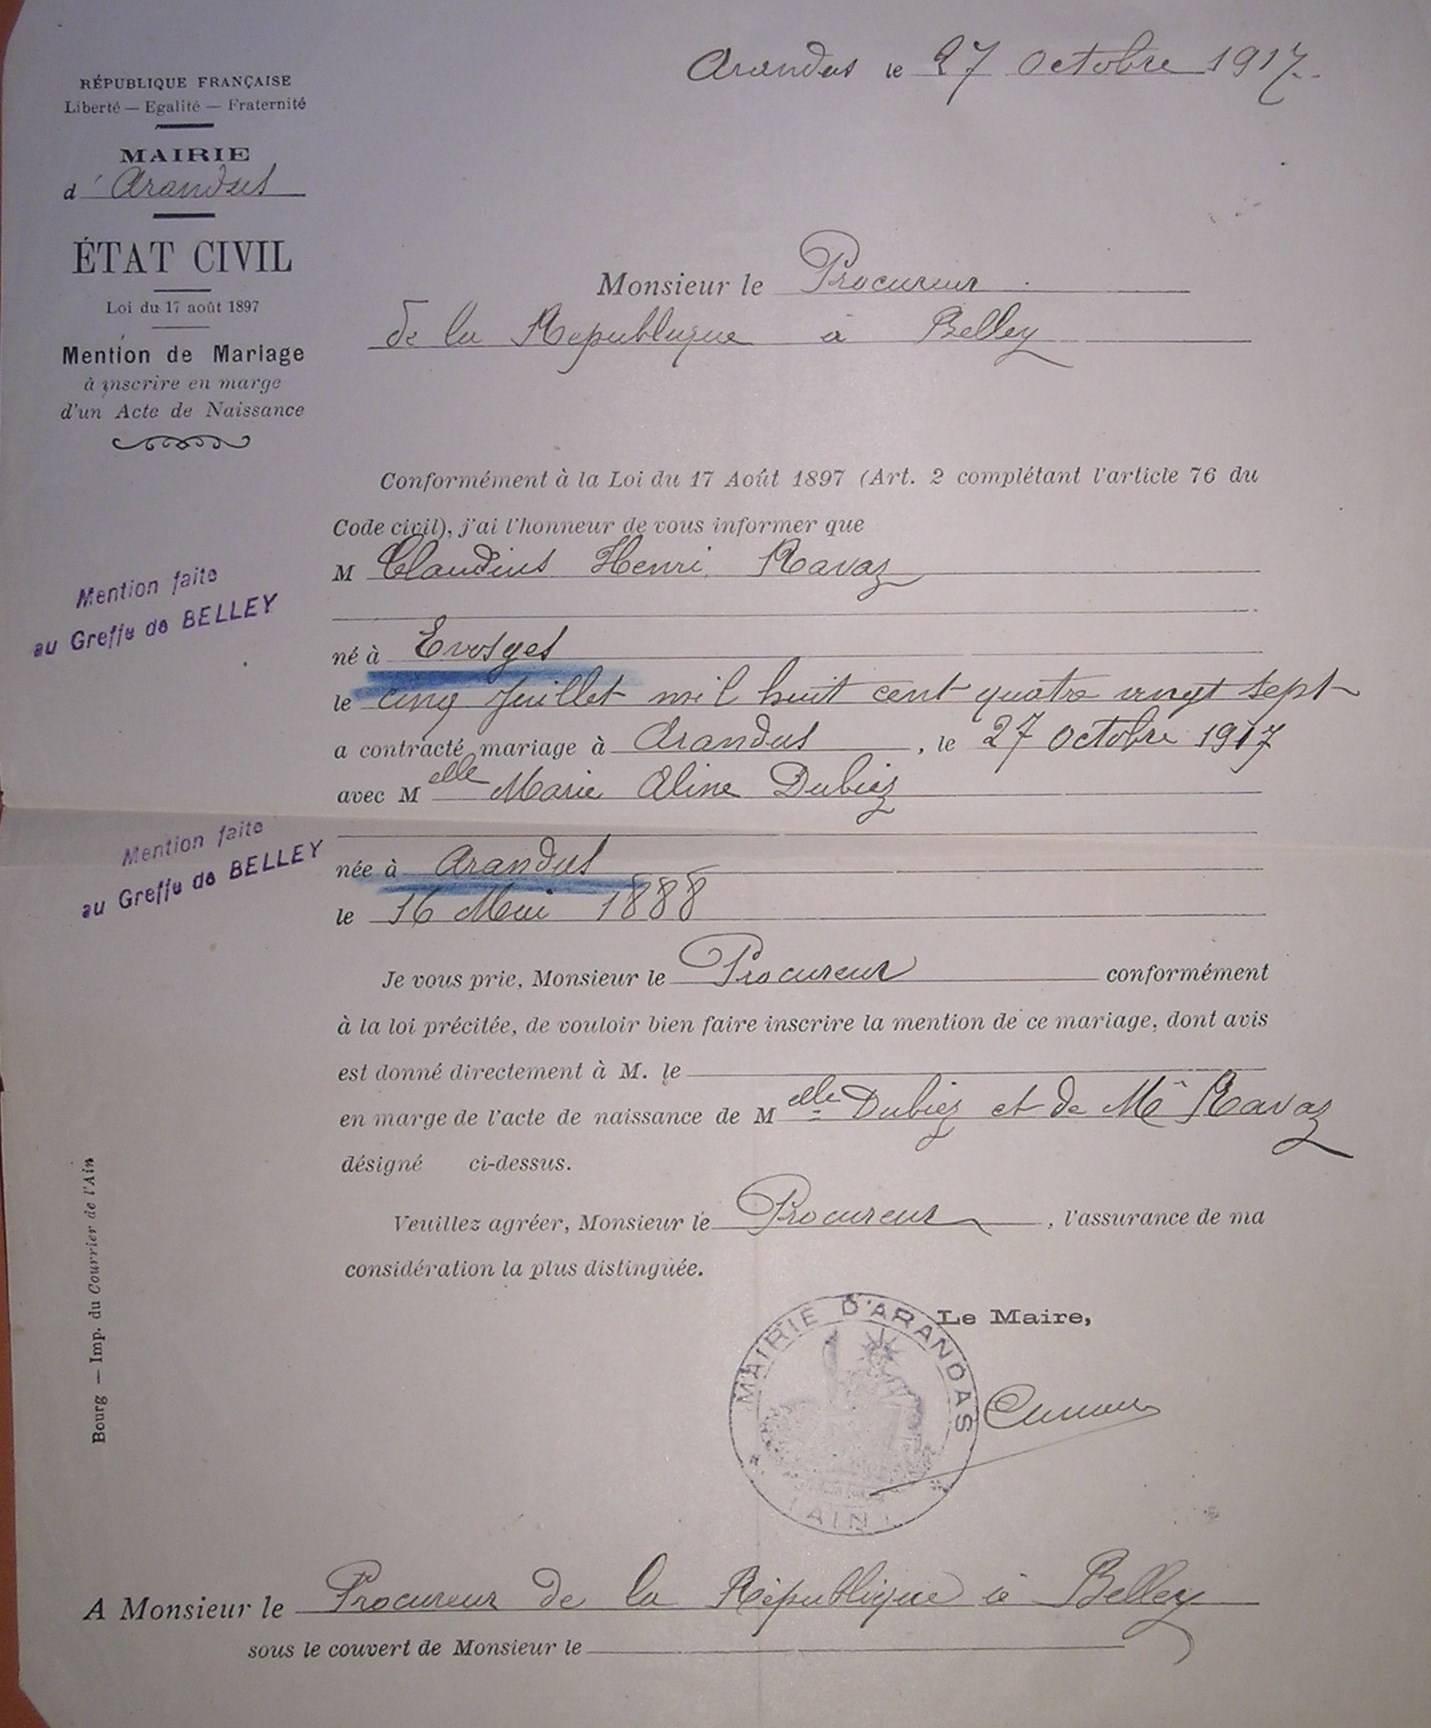 Arandas le 27 Octobre 1917.
RÉPUBLIQUE FRANÇAISE
Liberté — Egalité — Fraternité
MAIRIE
d'Arandas
ÉTAT CIVIL
Loi du 17 août 1897
Mention de Mariage
à inscrire en marge
d'un Acte de Naissance
Monsieur le Procureur
de la Republique à Belley
Conformément à la Loi du 17 Août 1897 (Art. 2 complétant l'article 76 du
Code civil), j'ai l'honneur de vous informer que
M Claudius Henri Ravaz
Mention faite
au Greffe de BELLEY
né à Evosges
le cinq Juillet mil huit cent quatre vingt sept
a contracté mariage à Arandas, le 27 Octobre 1917
avec Melle Marie Aline Dubiez
Mention faite
au Greffe de BELLEY
née à Arandas
le 16 Mai 1888
Je vous prie, Monsieur le Procureur conformément
à la loi précitée, de vouloir bien faire inscrire la mention de ce mariage, dont avis
est donné directement à M. le
en marge de l'acte de naissance de Melle Dubiez et de Mr Ravaz
désigné ci-dessus.
Veuillez agréer, Monsieur le Procureur, l'assurance de ma
considération la plus distinguée.
Le Maire,
MAIRIE D'ARANDAS
(AIN)
Bourg — Imp. du Courrier de l'Ain
A Monsieur le Procureur de la République à Belley
sous le couvert de Monsieur le